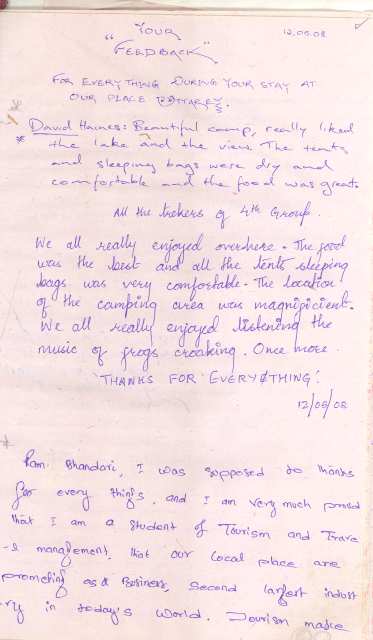 "YOUR
12.05.08
FEEDBACK"
FOR EVERYTHING DURING YOUR STAY AT
OUR PLACE
David Haines: Beautiful camp, really liked
* the lake and the view. The tents
and sleeping bags were dry and
comfortable and the food was great.
All the trekers of 4th Group.
We all really enjoyed overhere. The food
was the best and all the tents sleeping
bags was very comfortable. The location
of the camping area was magnipicient.
We all really enjoyed listening the
music of frogs croaking. Once more
'THANKS FOR EVERYTHING'.
12/05/08
Ram Bhandari, I was supposed to thanks
for every things. and I am very much proud
that I am a student of Tourism and Trave
-l management, that our local place are
promoting as a Business, second largest indust
ry in today's world. Tourism make